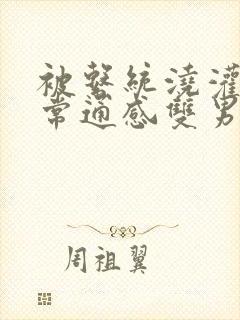 被繫統澆灌
常通感雙男
周祖翼